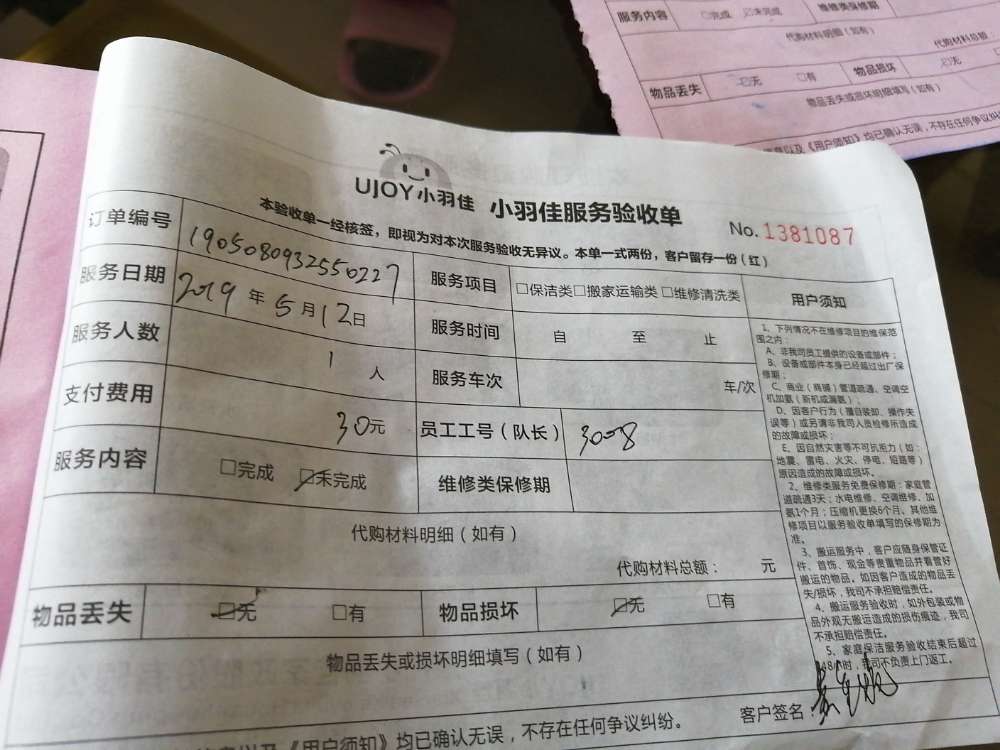 服务内容 □完成 ☑未完成 维修类保修期
代购材料明细(如有)
代购材料总额:
物品丢失 ☑无 □有 物品损坏 ☑无
物品丢失或损坏明细填写(如有)
以及《用户须知》均已确认无误,不存在任何争议纠
UJOY小羽佳 小羽佳服务验收单
No. 1381087
本验收单一经核签,即视为对本次服务验收无异议。本单一式两份,客户留存一份(红)
订单编号 1905080932550227 服务项目 □保洁类□搬家运输类□维修清洗类
服务日期 2019年5月12日 服务时间 自 至 止
服务人数 1人 服务车次 车/次
支付费用 30元 员工工号(队长) 3008
服务内容 □完成 ☑未完成 维修类保修期
代购材料明细(如有)
代购材料总额: 元
物品丢失 ☑无 □有 物品损坏 ☑无 □有
物品丢失或损坏明细填写(如有)
以及《用户须知》均已确认无误,不存在任何争议纠纷。
客户签名:
用户须知
1、下列情况不在维修项目的维保范
围之内:
A、非我司员工提供的设备或部件;
B、设备或部件本身已经超过出厂保
修期;
C、商业(商铺)管道疏通、空调空
机加氨(新机或漏氨)、
D、因客户行为(擅自装卸、操作失
误等)或另请非我司人员检修所造成
的故障或损坏;
E、因自然灾害等不可抗拒力(如:
地震、雷电、火灾、停电、短路等)
原因造成的故障或损坏。
2、维修类服务免费保修期:家庭管
道疏通3天;水电维修、空调维修、加
氨1个月;压缩机更换6个月。其他维
修项目以服务验收单填写的保修期为
准。
3、搬运服务中,客户应随身保管证
件、首饰、现金等贵重物品并看管好
搬运的物品。如因客户造成的物品丢
失/损坏,我司不承担赔偿责任。
4、搬运服务验收时,如外包装或物
品外观无搬运造成的损伤痕迹,我司
不承担赔偿责任。
5、家庭保洁服务验收结束后超过
48小时,我司不负责上门返工。